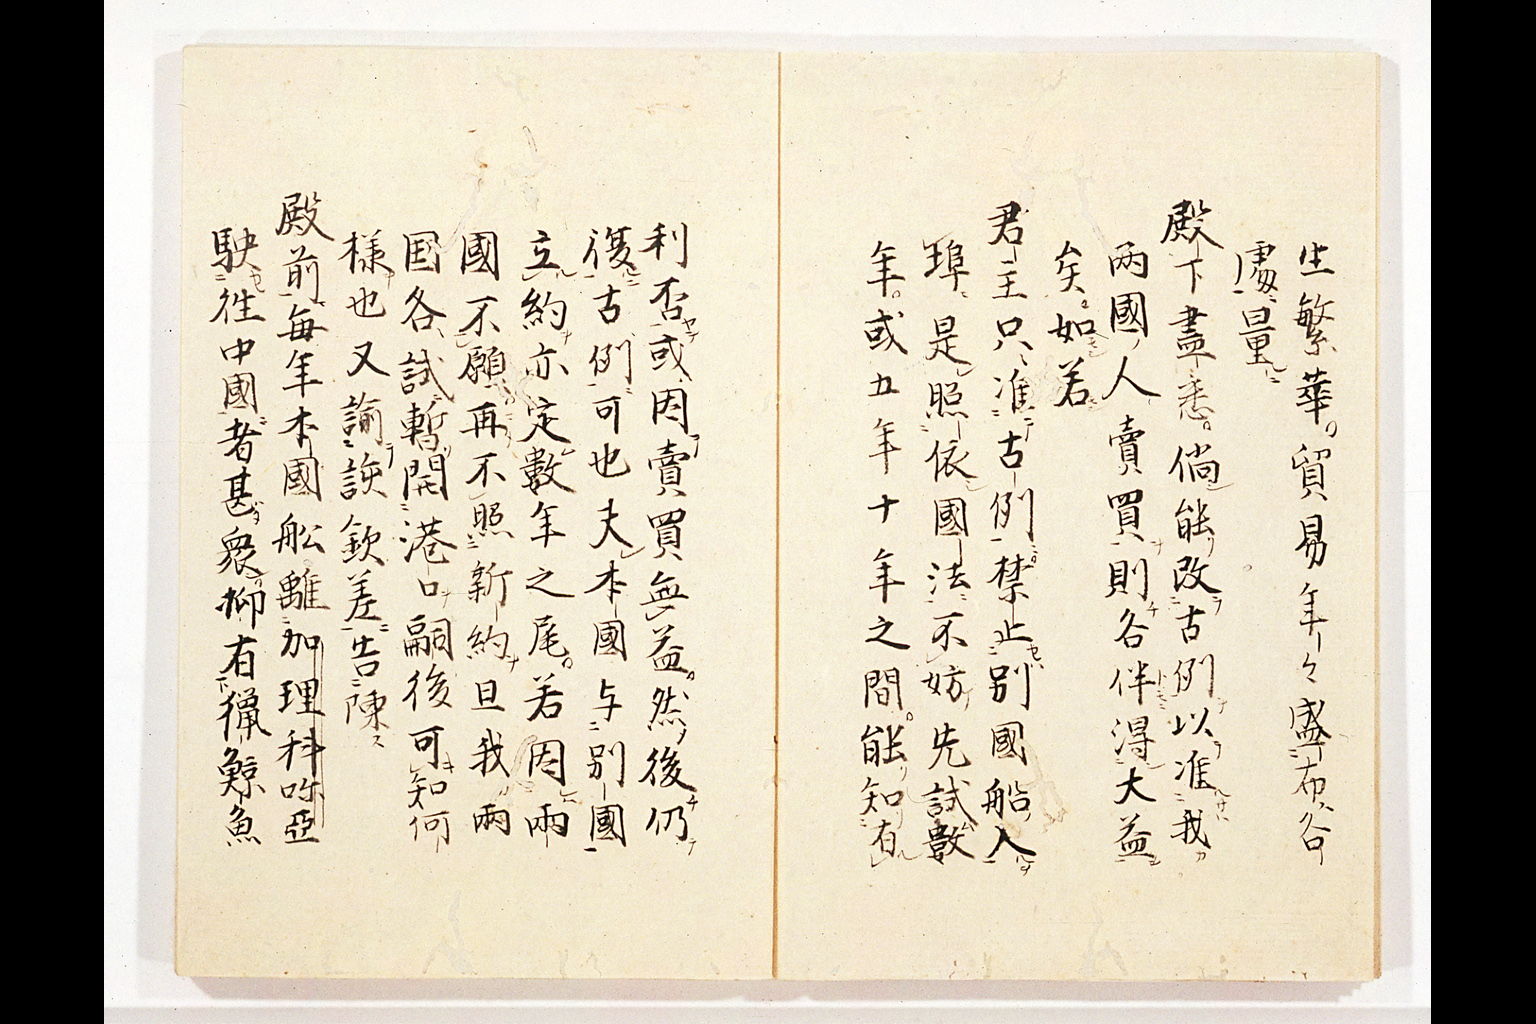 生繁華貿易年々盛布各
處量
殿下盡悉倘能改古例以准我
兩國人賣買則各伴得大益
矣如若
君主只准古例禁止別國船人
埠是照依國法不妨先試數
年或五年十年之間能知有
利否或因賣買無益然後仍
復古例可也夫本國与別國
立約亦定數年之尾若因兩
國不願再不照新約且我兩
囯各試暫開港口嗣後可知何
様也又諭該欽差告陳
殿前每年本國舩離加理科呌亞
駛徃中國者甚衆抑有獵鯨魚